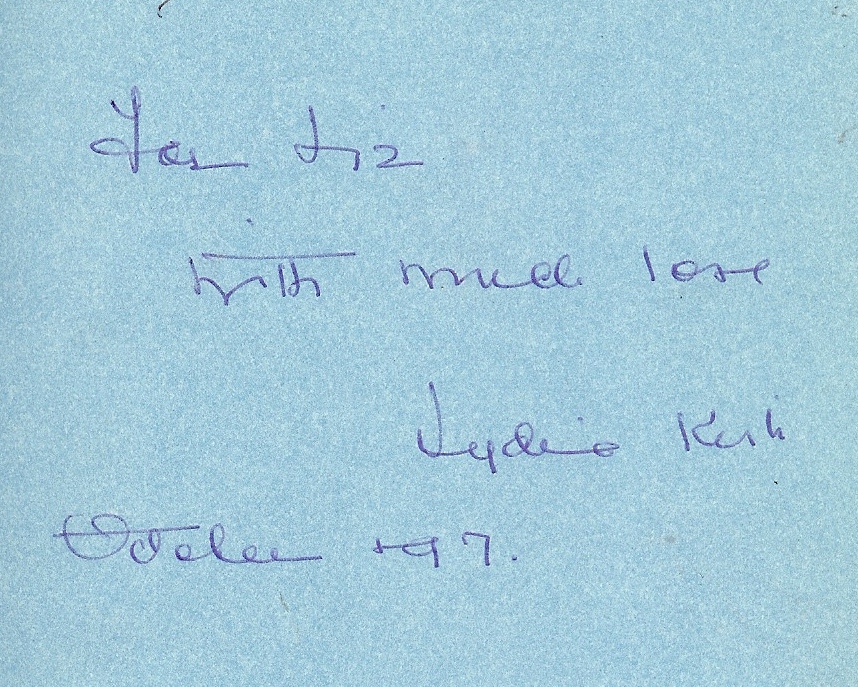 For Liz
with much love
Lydia
October 97.